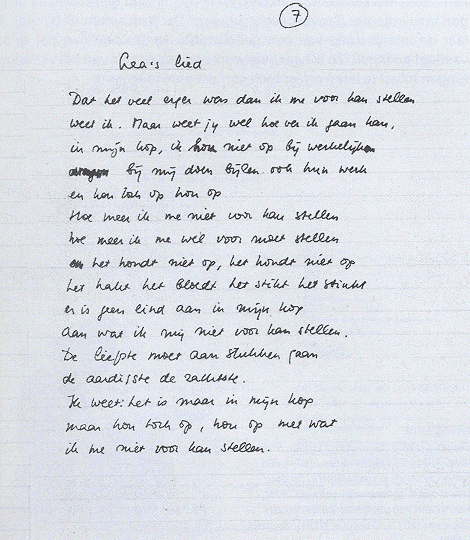 7
Lea's lied
Dat het veel erger was dan ik me voor kan stellen
weet ik. Maar weet jy wel hoe ver ik gaan kan,
in mijn kop, ik hou niet op bij werkelijken
bij mij doen bijlen ook hun werk
en hou toch op hou op
Hoe meer ik me niet voor kan stellen
hoe meer ik me wel voor moet stellen
en het houdt niet op, het houdt niet op
het hakt het bloedt het stikt het stinkt
er is geen eind aan in mijn kop
aan wat ik mij niet voor kan stellen.
De liefste moet aan stukken gaan
de aardigste de zachtste.
Ik weet: het is maar in mijn kop
maar hou toch op, hou op met wat
ik me niet voor kan stellen.